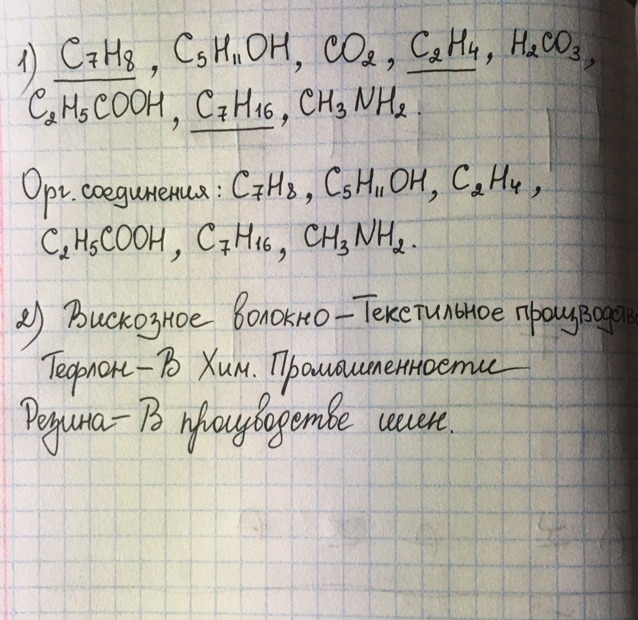 1) C₇H₈, C₅H₁₁OH, CO₂, C₂H₄, H₂CO₃,
C₂H₅COOH, C₇H₁₆, CH₃NH₂.
Орг. соединения: C₇H₈, C₅H₁₁OH, C₂H₄,
C₂H₅COOH, C₇H₁₆, CH₃NH₂.
2) Вискозное волокно – Текстильное производство
Тефлон – В Хим. Промышленности
Резина – В производстве шин.